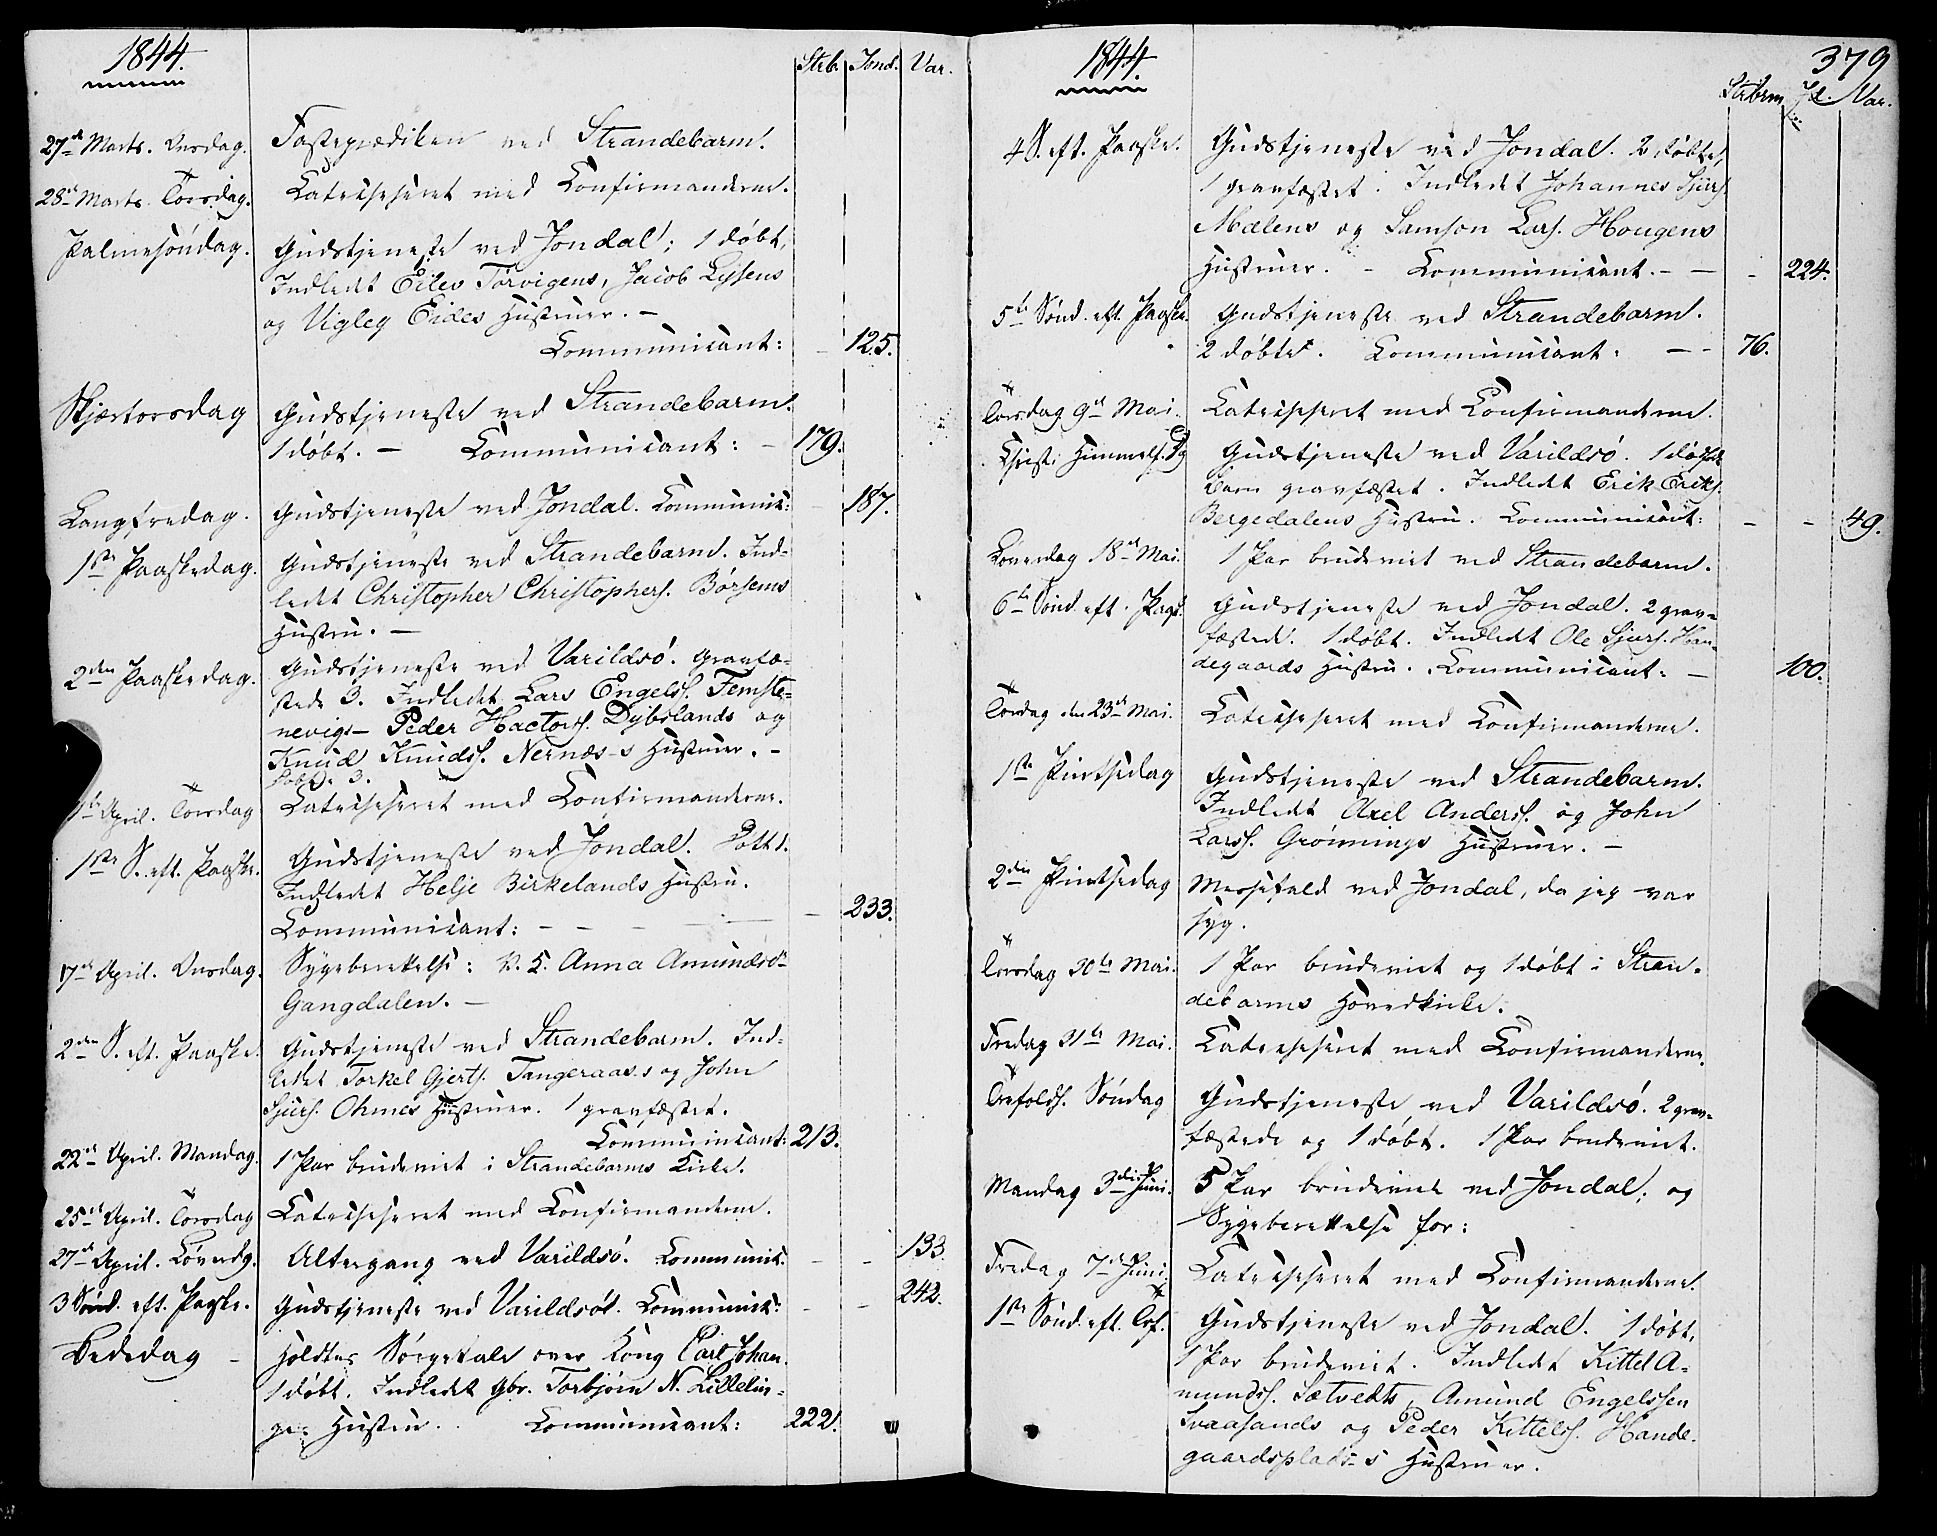 1844.
Strb. Jond. Var.
27de Marts. Onsdag. Fasteprædiken ved Strandebarm.
28de Marts. Torsdag. Catechiseret med Confirmanderne.
Palmesöndag. Gudstjeneste ved Jondal; 1 døbt,
Indledet Eilev Torvigens, Jacob Lyssens
og Vigleg Eides Hustruer. –
Communicant: – 125.
Skjærtorsdag Gudstjeneste ved Strandebarm.
1 døbt. – Communicant: – 179.
Langfredag. Gudstjeneste ved Jondal. Communic: – 187.
1ste Paaskedag. Gudstjeneste ved Strandebarm. Ind-
ledet Christopher Christophers. Børsems
Hustru. –
2den Paaskedag. Gudstjeneste ved Varildsö. Gravfæ-
stede 3. Indledet Lars Engelss. Femste-
nevigs – Peder Hactorss. Dybslands og
Knud Knudss. Nernæs-s Hustruer. –
Døbt 3.
April. Torsdag Catechiseret med Confirmanderne.
1ste S. eft. Paaske. Gudstjeneste ved Jondal. Døbt 1.
Indledet Helje Birkelands Hustru.
Communicant: – – – – – 233.
17de April. Onsdag. Sygeberettelse: N. 5. Anna Amundsdr
Gangdalen. –
2den S. eft. Paaske. Gudstjeneste ved Strandebarm. Ind-
ledet Torkel Gjerts. Tangeraas-s og John
Sjurs. Ohmes Hustruer. 1 gravfæstet.
Communicant: 213.
22de April. Mandag. 1 Par brudeviet i Strandebarms Kirke.
25de April. Torsdag Catechiseret med Confirmanderne.
27de April. Løverdg. Altergang ved Varildsö. Communic: – – 133.
3 Sönd. eft. Paaske. Gudstjeneste ved Varildsöe. Communic: – – 242.
Bededag – Holdtes Sörgetale over Kong Carl Johan.
1 døbt. Indledet Gbr. Torbjörn N. Lillelin-
ges Hustru. Communicant: 222.
1844.
379
Strbrm Jd. Var.
4 S. eft. Paaske. Gudstjeneste ved Jondal. 2 døbte,
1 gravfæstet. Indledet Johannes Sjurs.
Mælens og Samson Lars. Hougens
Hustruer. – Communicant. – – – 224.
5te Sönd. eft. Paaske. Gudstjeneste ved Strandebarm.
2 døbte. Communicant: – – 76.
Torsdag 9de Mai. Catechiseret med Confirmanderne.
Christi Himmelf. Dg Gudstjeneste ved Varildsö. 1 døpt
barn gravfæstet. Indledet Erik Eriks.
Bergedalens Hustru. Communicant: – – 49.
Löverdag 18de Mai. 1 Par brudeviet ved Strandebarm.
6te Sönd. eft. Paas. Gudstjeneste ved Jondal. 2 grav-
fæstede. 1 døbt. Indledet Ole Sjurs. Han-
degaards Hustru. Communicant: – 100.
Torsdag den 23de Mai. Catechiseret med Confirmanderne.
1ste Pintsedag Gudstjeneste ved Strandebarm.
Indledet Axel Anderss. og John
Larss. Grönnings Hustruer. –
2den Pintsedag Messefald ved Jondal, da jeg var
syg.
Torsdag 30te Mai. 1 Par brudeviet og 1 døbt i Stran-
debarms Hovedkirke.
Fredag 31te Mai. Catechiseret med Confirmanderne.
Trefolds. Söndag Gudstjeneste ved Varildsö. 2 grav-
fæstede og 1 døbt. 1 Par brudeviet.
Mandag 3die Juni. 5 Par brudeviet ved Jondal; og
Sygeberettelse for:
Fredag 7de Juni. Catechiseret med Confirmanderne.
1ste Sönd. eft. Tref. Gudstjeneste ved Jondal. 1 døbt,
1 Par brudeviet. Indledet Kittel A-
mundss. Sætvedts, Amund Engelssen
Svaasands og Peder Kittelss. Hande-
gaardsplads-s Hustruer.